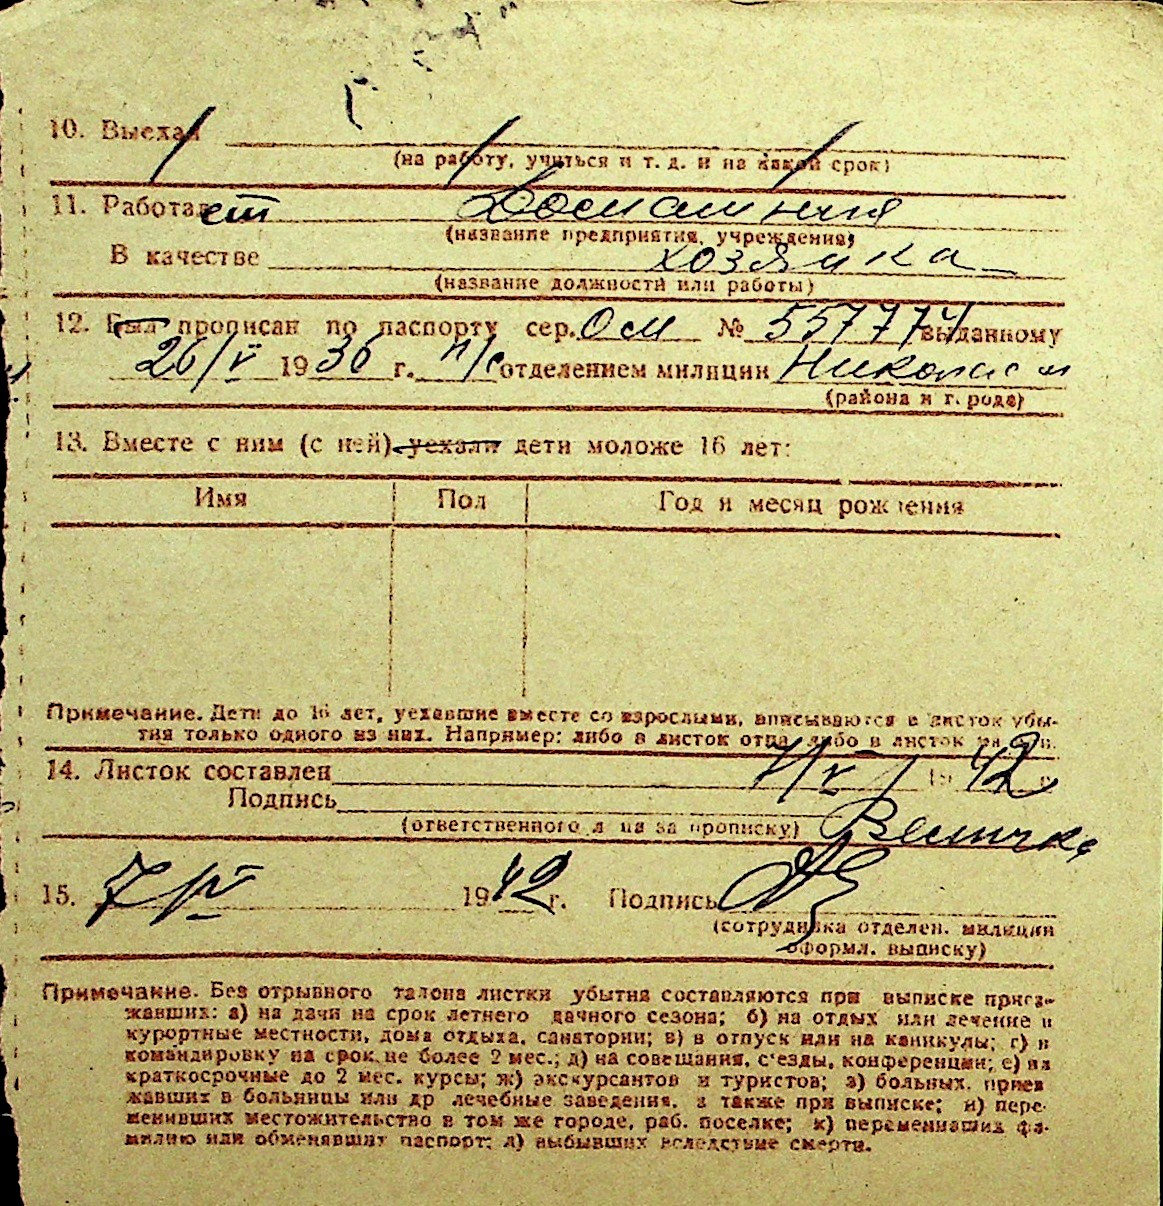 10. Выехал
(на работу, учиться и т. д. и на какой срок)
11. Работает Домашняя
(название предприятия, учреждения)
В качестве хозяйка
(название должности или работы)
12. Был прописан по паспорту сер. Ом № 557774 выданному
26/V 1936 г. п/с отделением милиции
(района и города)
13. Вместе с ним (с ней) уехали дети моложе 16 лет:
Имя Пол Год и месяц рождения
Примечание. Дети до 16 лет, уехавшие вместе со взрослыми, вписываются в листок убы-
тия только одного из них. Например: либо в листок отца, либо в листок
14. Листок составлен 1942 г.
Подпись
(ответственного лица за прописку)
15. 7/IV 1942 г. Подпись
(сотрудника отделен. милиции
оформл. выписку)
Примечание. Без отрывного талона листки убытия составляются при выписке приез-
жавших: а) на дачи на срок летнего дачного сезона; б) на отдых или лечение и
курортные местности, дома отдыха, санатории; в) в отпуск или на каникулы; г) в
командировку на срок не более 2 мес.; д) на совещания, с'езды, конференции; е) на
краткосрочные до 2 мес. курсы; ж) экскурсантов и туристов; з) больных, приез
жавших в больницы или др лечебные заведения, а также при выписке; и) пере-
менивших местожительство в том же городе, раб. поселке; к) переменивших фа-
милию или обменявших паспорт; л) выбывших вследствие смерти.